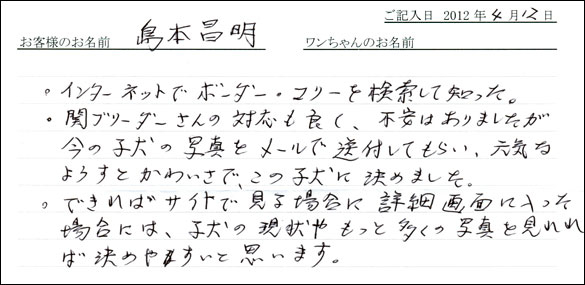 ご記入日 2012年4月12日
お客様のお名前 島本昌明 ワンちゃんのお名前
。インターネットでボーダー・コリーを検索して知った。
・関ブリーダーさんの対応も良く、不安はありましたが
今の子犬の写真をメールで送付してもらい、元気な
ようすとかわいさで、この子犬に決めました。
。できればサイトで見る場合に詳細画面に入った
場合には、子犬の現状やもっと多くの写真を見れれ
ば決めやすいと思います。